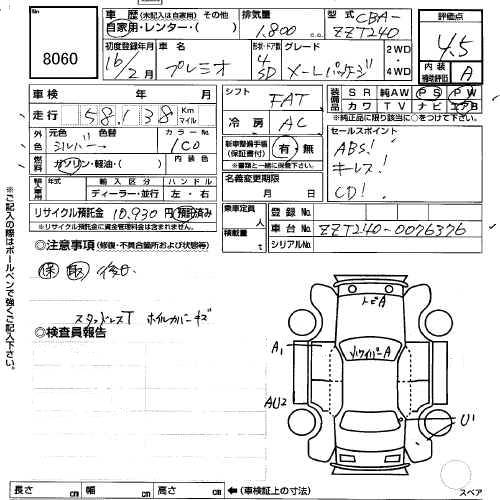 No.
8060
車歴 (未記入は自家用) その他
自家用・レンター・( )
排気量
1,800 cc
型式 CBA-
ZZT240
評価点
4.5
内装
補助評価 A
初度登録年月
16/2月
車名
プレミオ
形状・ドア数
4
SD
グレード
X-Lパッケージ
2WD
・
4WD
車検 年 月
走行 58,138 Km マイル
シフト
FAT
装備品
SR 純AW PS PW
カワ TV ナビ エアB
※純正品に限り該当に○をつける
外色
元色 色替
シルバー
カラーNo.
1C0
冷房
AC
セールスポイント
ABS!
キーレス!
CD!
燃料
ガソリン・軽油・( )
内装色
新車整備手帳
(保証書付)
有・無
輸入車
年式 輸入区分 ハンドル
ディーラー・並行 左・右
名義変更期限
月 日
リサイクル預託金 10,930円 預託済み
※リサイクル預託金に資金管理料金は含まれません。
乗車定員 人
積載量 t
登録No.
車台No. ZZT240-0076376
シリアルNo.
◎注意事項 (修復・不具合箇所および状態等)
保 取 後日
スタッドレスT ホイルカバーキズ
◎検査員報告
※ご記入の際はボールペンで強くご記入下さい。
トビA
ワイパーA
A1
AU2
U1
長さ cm 幅 cm 高さ cm ←(車検証上の寸法)
スペア